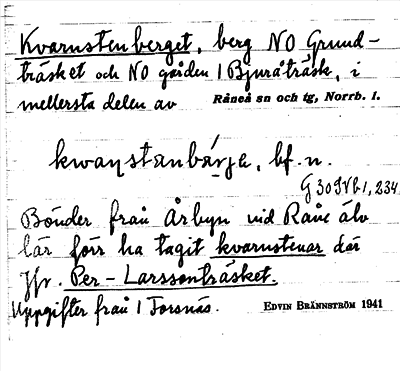 Kvarnstenberget, berg NO Grund-
träsket och NO gården 1 Bjuråträsk, i
mellersta delen av Råneå sn och tg, Norrb. l.
kwaṇstanbárja, bf. n.
G 30 IVb1, 234
Bönder från Årbyn vid Råne älv
lär förr ha tagit kvarnstenar där
Jfr. Per-Larssonträsket.
Uppgifter från 1 Forsnäs. EDVIN BRÄNNSTRÖM 1941